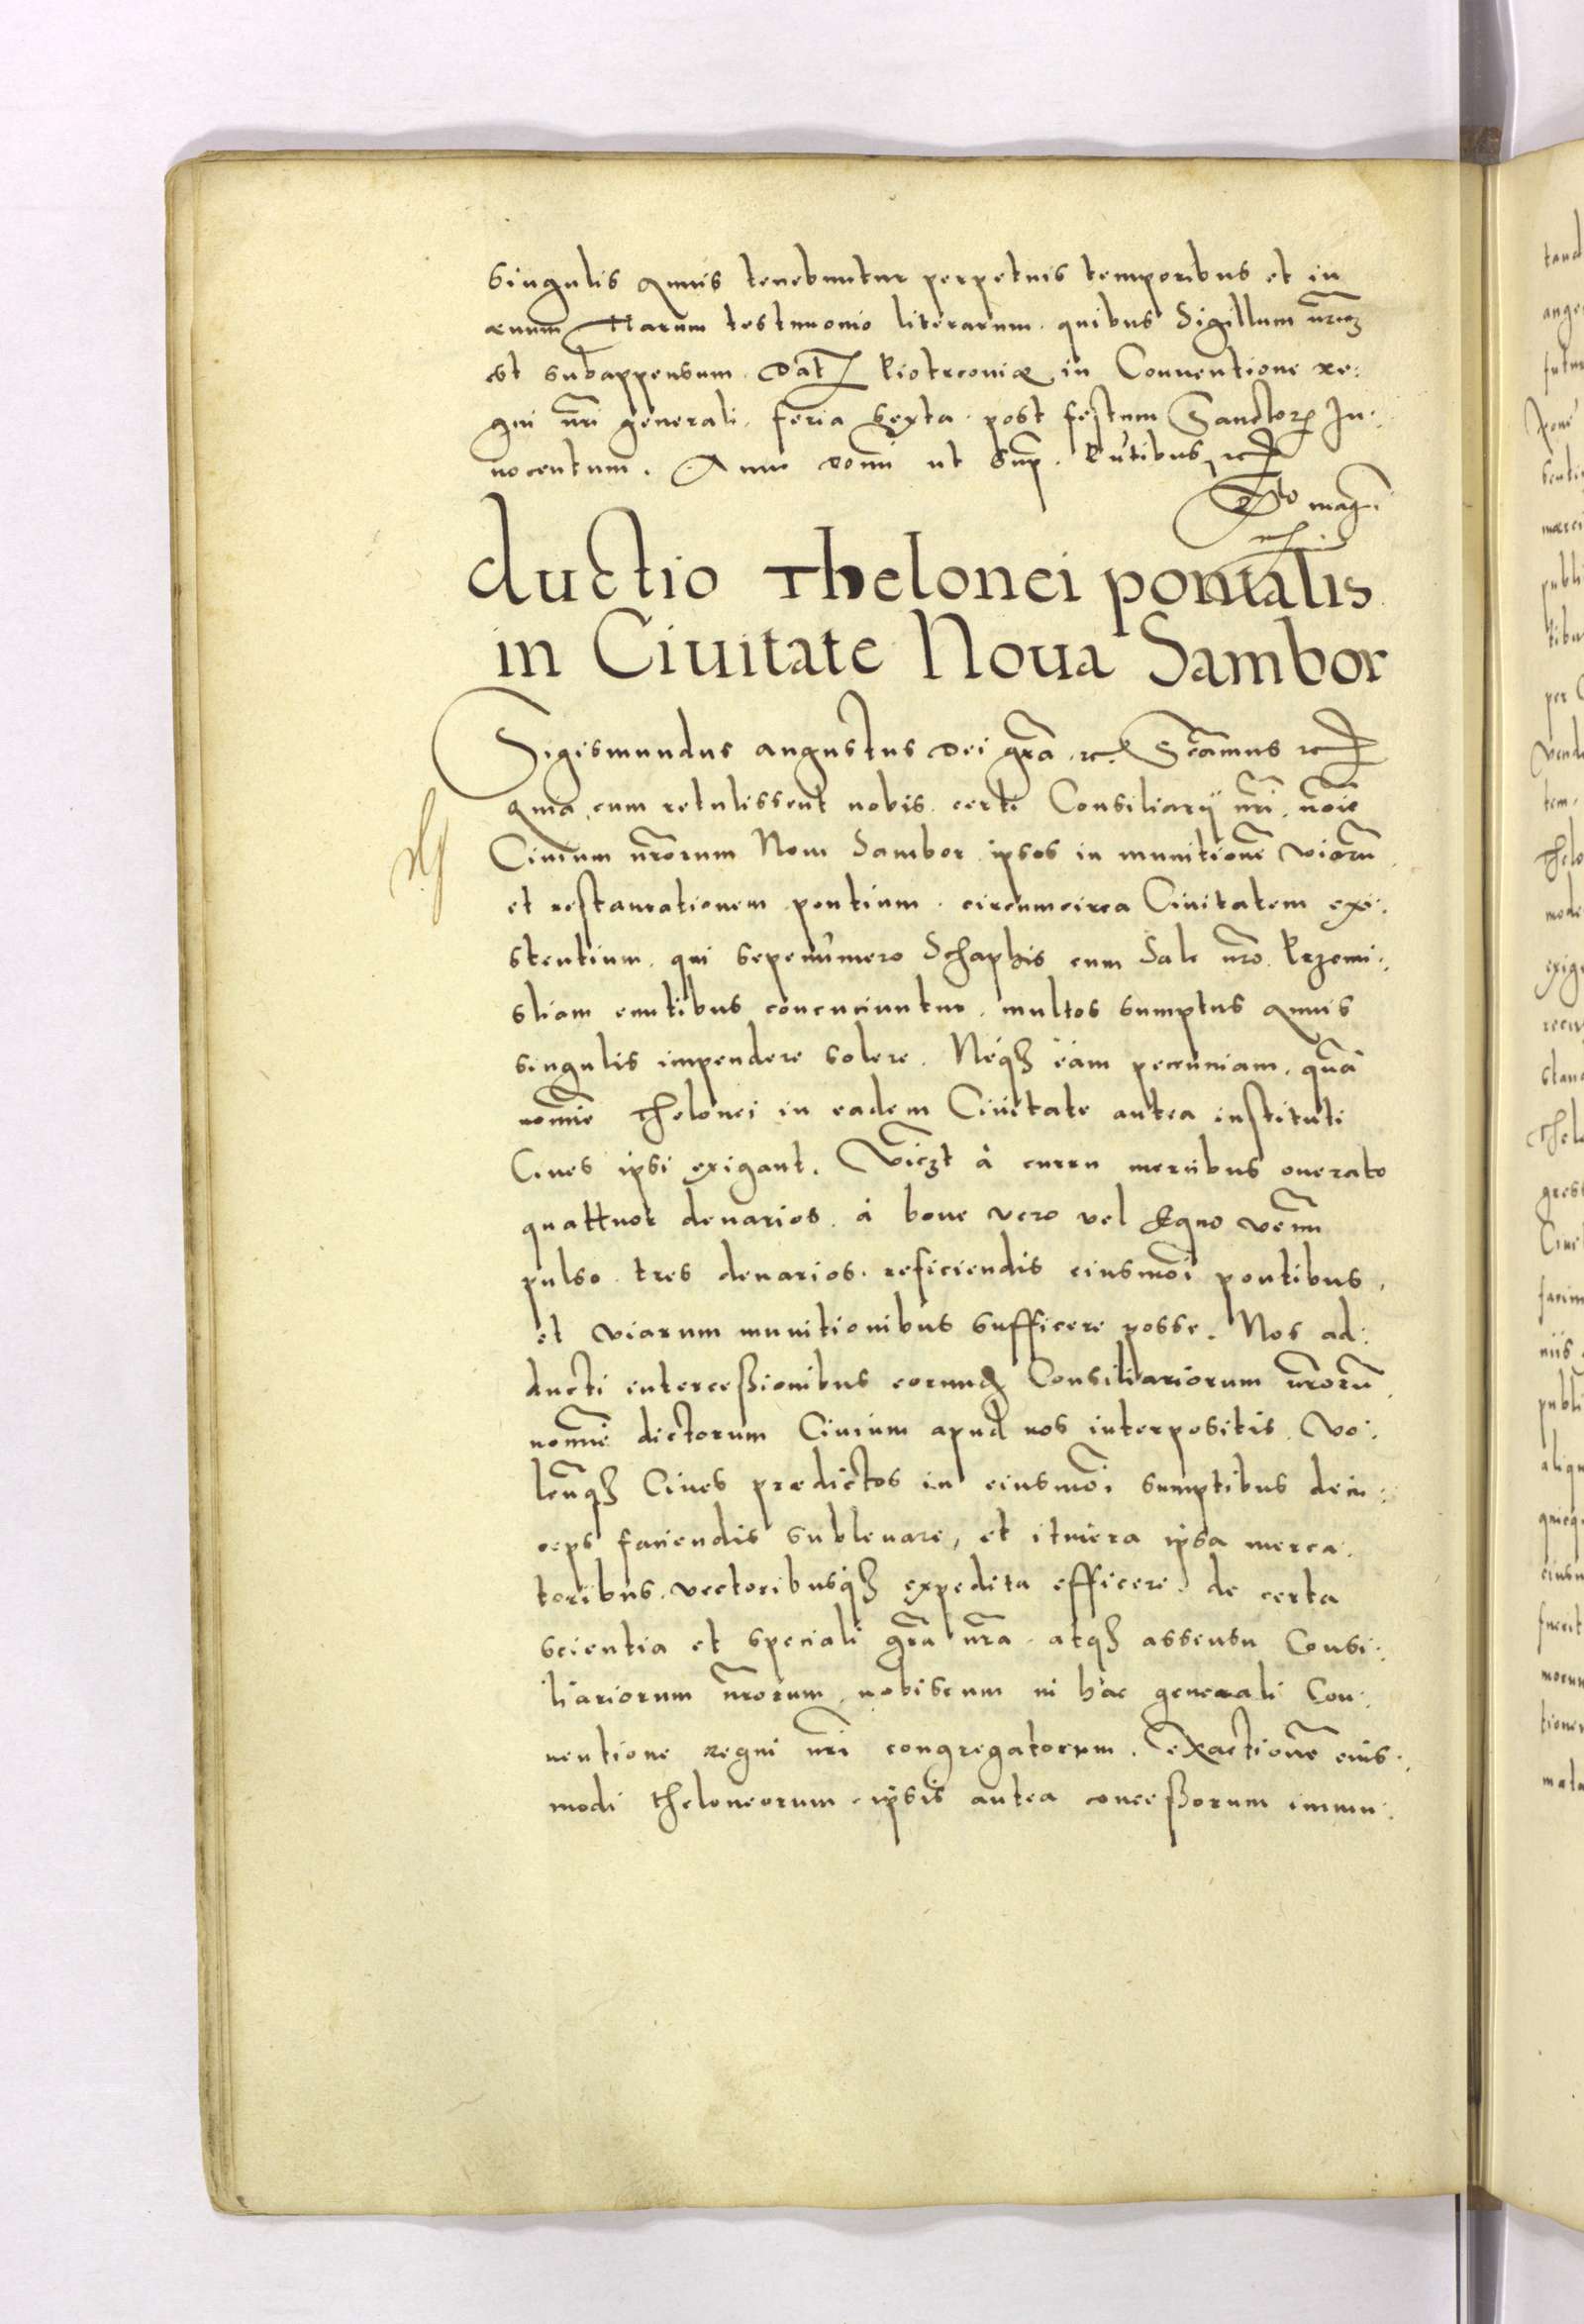 singulis annis tenebuntur perpetuis temporibus et in
æuum Harum testimonio literarum quibus Sigillum nrum
est subappensum. Dat Piotrcouiæ in Conuentione re:
gni nri generali, feria sexta post festum Sanctorum In:
nocentum. Anno domi ut sup. Pntibus, etc
Rlo mag.
ductio Thelonei pontalis
in Ciuitate Noua Sambor
Sigismundus augustus Dei gra etc. Sctamus etc
Quia cum retulissent nobis certi Consiliarij nri noie
Ciuium nrorum Noui Sambor ipsos in munitione viaru
et restaurationem pontium circumcirca Ciuitatem exi:
stentium, qui sepenumero Schaphis cum Sale nro Przemi:
sliam euntibus concuciuntur, multos sumptus annis
singulis impendere solere. Neqz eam pecuniam, qua
nomie Thelonei in eadem Ciuitate antea instituti
Ciues ipsi exigant. Viczt à curru mercibus onerato
quattuor denarios, à boue vero vel Equo venum
pulso tres denarios, reficiendis eiusmoi pontibus,
et viarum munitionibus sufficere posse. Nos ad:
ducti intercessionibus eorund Consiliariorum nroru
nomie dictorum Ciuium apud nos interpositis, Vo:
lentqz Ciues prædictos in eiusmoi sumptibus dein:
ceps faciendis subleuare, et itinera ipsa merca:
toribus, vectoribusqz expedita efficere, de certa
scientia et speciali gra nra, atqz assensu Consi:
liariorum nrorum nobiscum in hac generali Con:
uentione regni nri congregatorum. Exactione eius:
modi theloneorum ipsis antea concessorum immu: